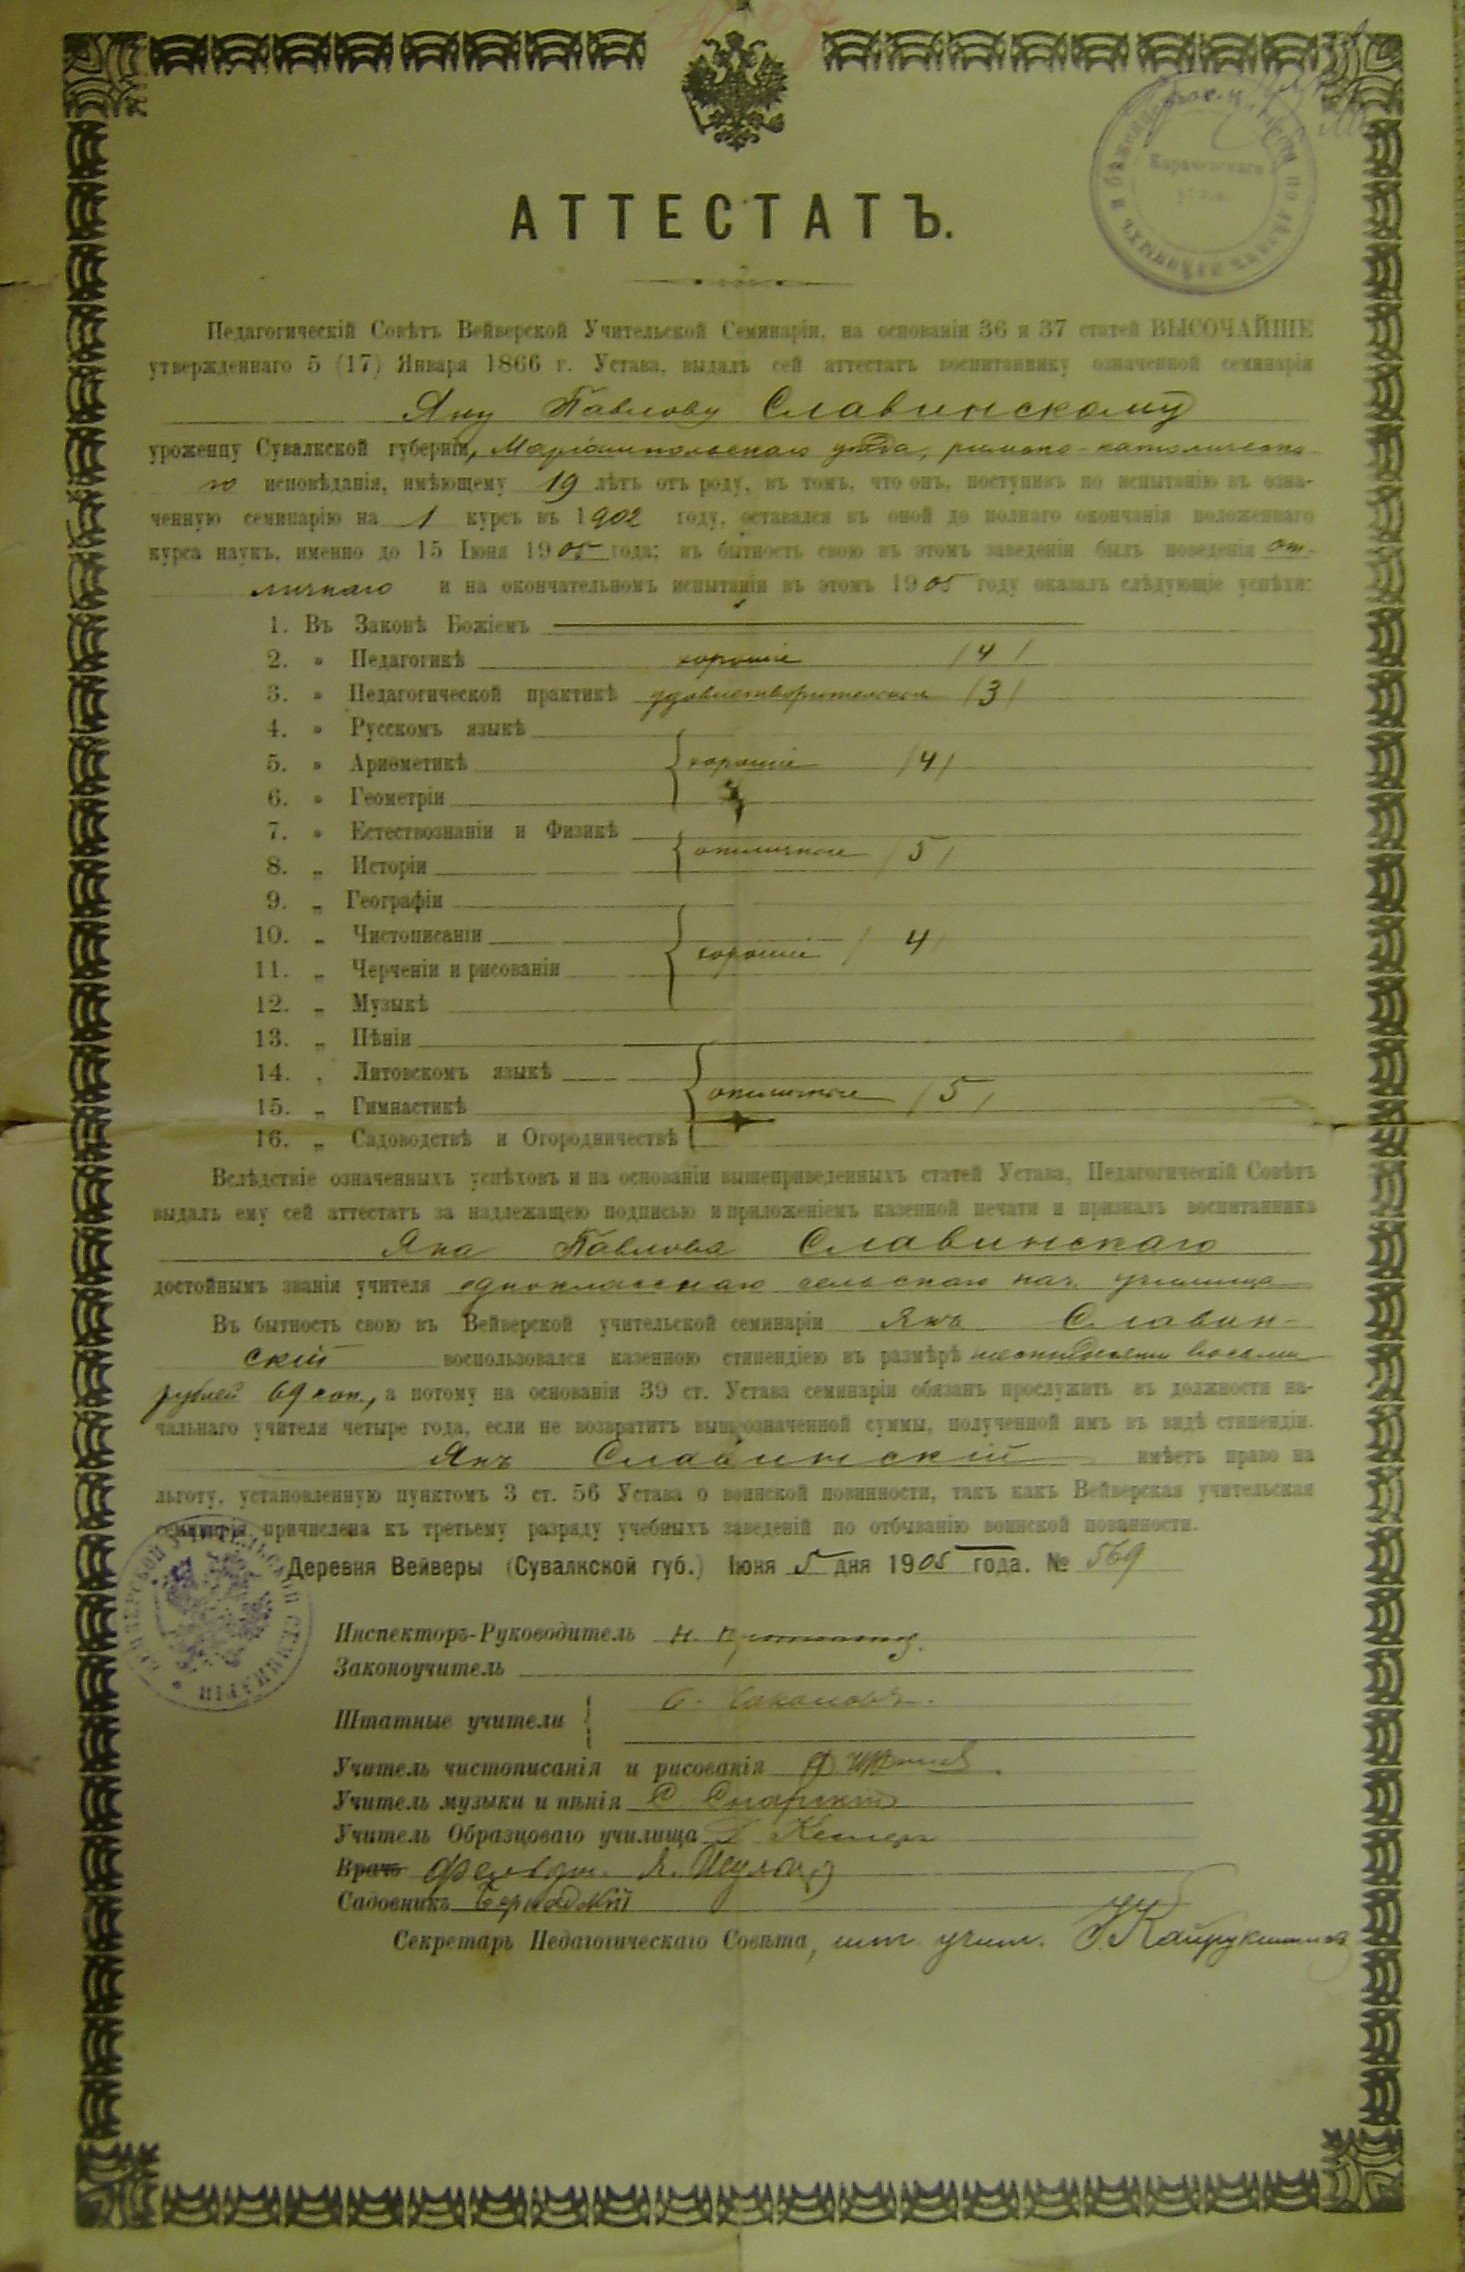 АТТЕСТАТЪ.
Педагогическій Совѣтъ Вейверской Учительской Семинаріи, на основаніи 36 и 37 статей ВЫСОЧАЙШЕ
утвержденнаго 5 (17) Января 1866 г. Устава, выдалъ сей аттестатъ воспитаннику означенной семинаріи
Яну Павлову Славинскому
уроженцу Сувалкской губерніи, Маріампольскаго уѣзда, римско-католическа-
го исповѣданія, имѣющему 19 лѣтъ отъ роду, въ томъ, что онъ, поступивъ по испытанію въ озна-
ченную семинарію на 1 курсъ въ 1902 году, оставался въ оной до полнаго окончанія положеннаго
курса наукъ, именно до 15 Іюня 1905 года; въ бытность свою въ этомъ заведеніи былъ поведенія от-
личнаго и на окончательномъ испытаніи въ этомъ 1905 году оказалъ слѣдующіе успѣхи:
1. Въ Законѣ Божіемъ
2. » Педагогикѣ хорошіе /4/
3. » Педагогической практикѣ удовлетворительные /3/
4. » Русскомъ языкѣ
5. » Ариѳметикѣ хорошіе /4/
6. » Геометріи
7. » Естествознаніи и Физикѣ
отличные /5/
8. „ Исторіи
9. „ Географіи
10. „ Чистописаніи
хорошіе /4/
11. „ Черченіи и рисованіи
12. „ Музыкѣ
13. „ Пѣніи
14. „ Литовскомъ языкѣ
15. „ Гимнастикѣ отличные /5/
16. „ Садоводствѣ и Огородничествѣ
Вслѣдствіе означенныхъ успѣховъ и на основаніи вышеприведенныхъ статей Устава, Педагогическій Совѣтъ
выдалъ ему сей аттестатъ за надлежащею подписью и приложеніемъ казенной печати и призналъ воспитанника
Яна Павлова Славинскаго
достойнымъ званія учителя однокласснаго сельскаго нач. училища
Въ бытность свою въ Вейверской учительской семинаріи Янъ Славин-
скій воспользовался казенною стипендіею въ размѣрѣ восемь
рублей 69 коп., а потому на основаніи 39 ст. Устава семинаріи обязанъ прослужить въ должности на-
чальнаго учителя четыре года, если не возвратитъ вышеозначенной суммы, полученной имъ въ видѣ стипендіи.
Янъ Славинскій имѣетъ право на
льготу, установленную пунктомъ 3 ст. 56 Устава о воинской повинности, такъ какъ Вейверская учительская
семинарія причислена къ третьему разряду учебныхъ заведеній по отбыванію воинской повинности.
Деревня Вейверы (Сувалкской губ.) Іюня 5 дня 1905 года. № 569
Инспекторъ-Руководитель
Законоучитель
Штатные учители
Учитель чистописанія и рисованія
Учитель музыки и пѣнія С.
Учитель Образцоваго училища
Врачъ
Садовникъ
Секретарь Педагогическаго Совѣта, шт. учит.